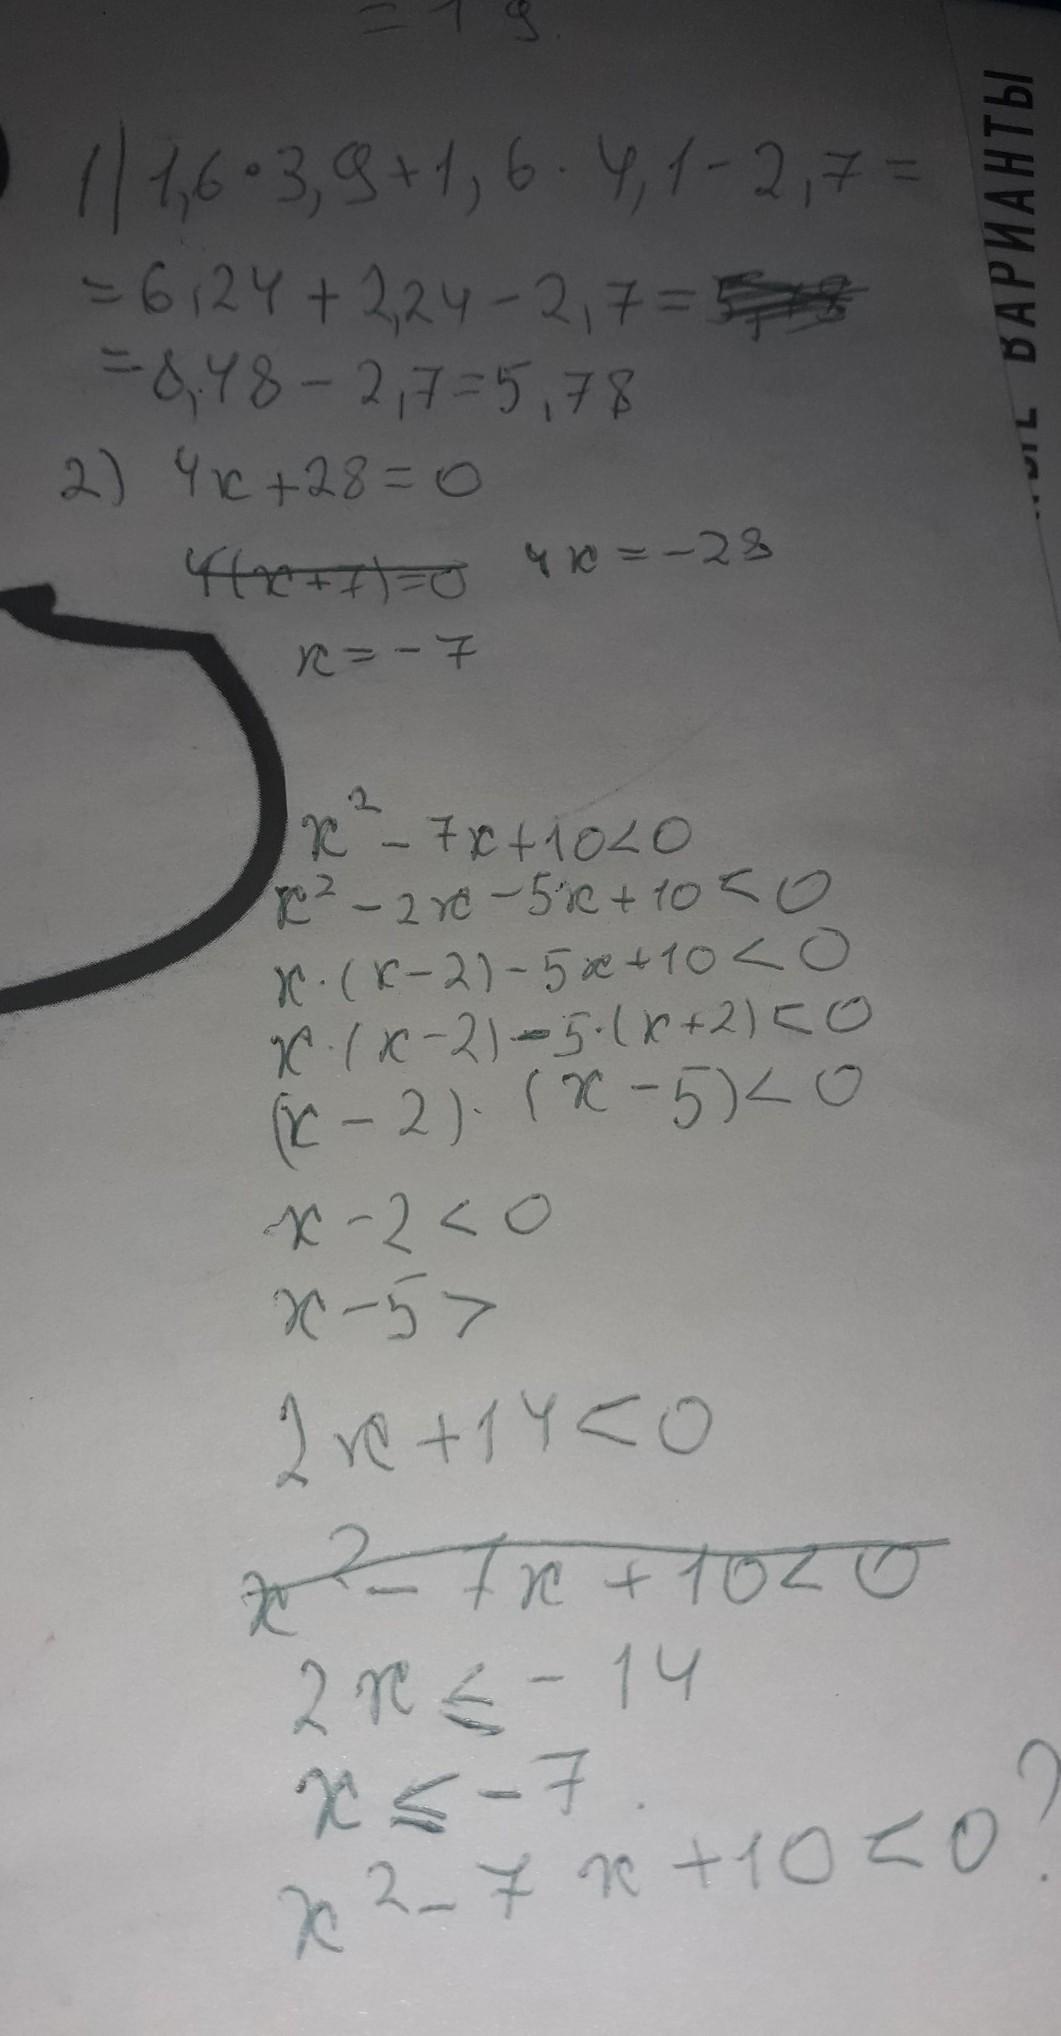 = 19.
1) 1,6·3,9+1,6·4,1-2,7=
=6,24+2,24-2,7=
=8,48-2,7=5,78
2) 4x+28=0
4(x+7)=0 4x=-28
x=-7
x²-7x+10<0
x²-2x-5x+10<0
x·(x-2)-5x+10<0
x·(x-2)-5·(x+2)<0
(x-2)·(x-5)<0
x-2<0
x-5>
2x+14<0
x²-7x+10<0
2x≤-14
x≤-7.
x²-7x+10<0?
ВАРИАНТЫ